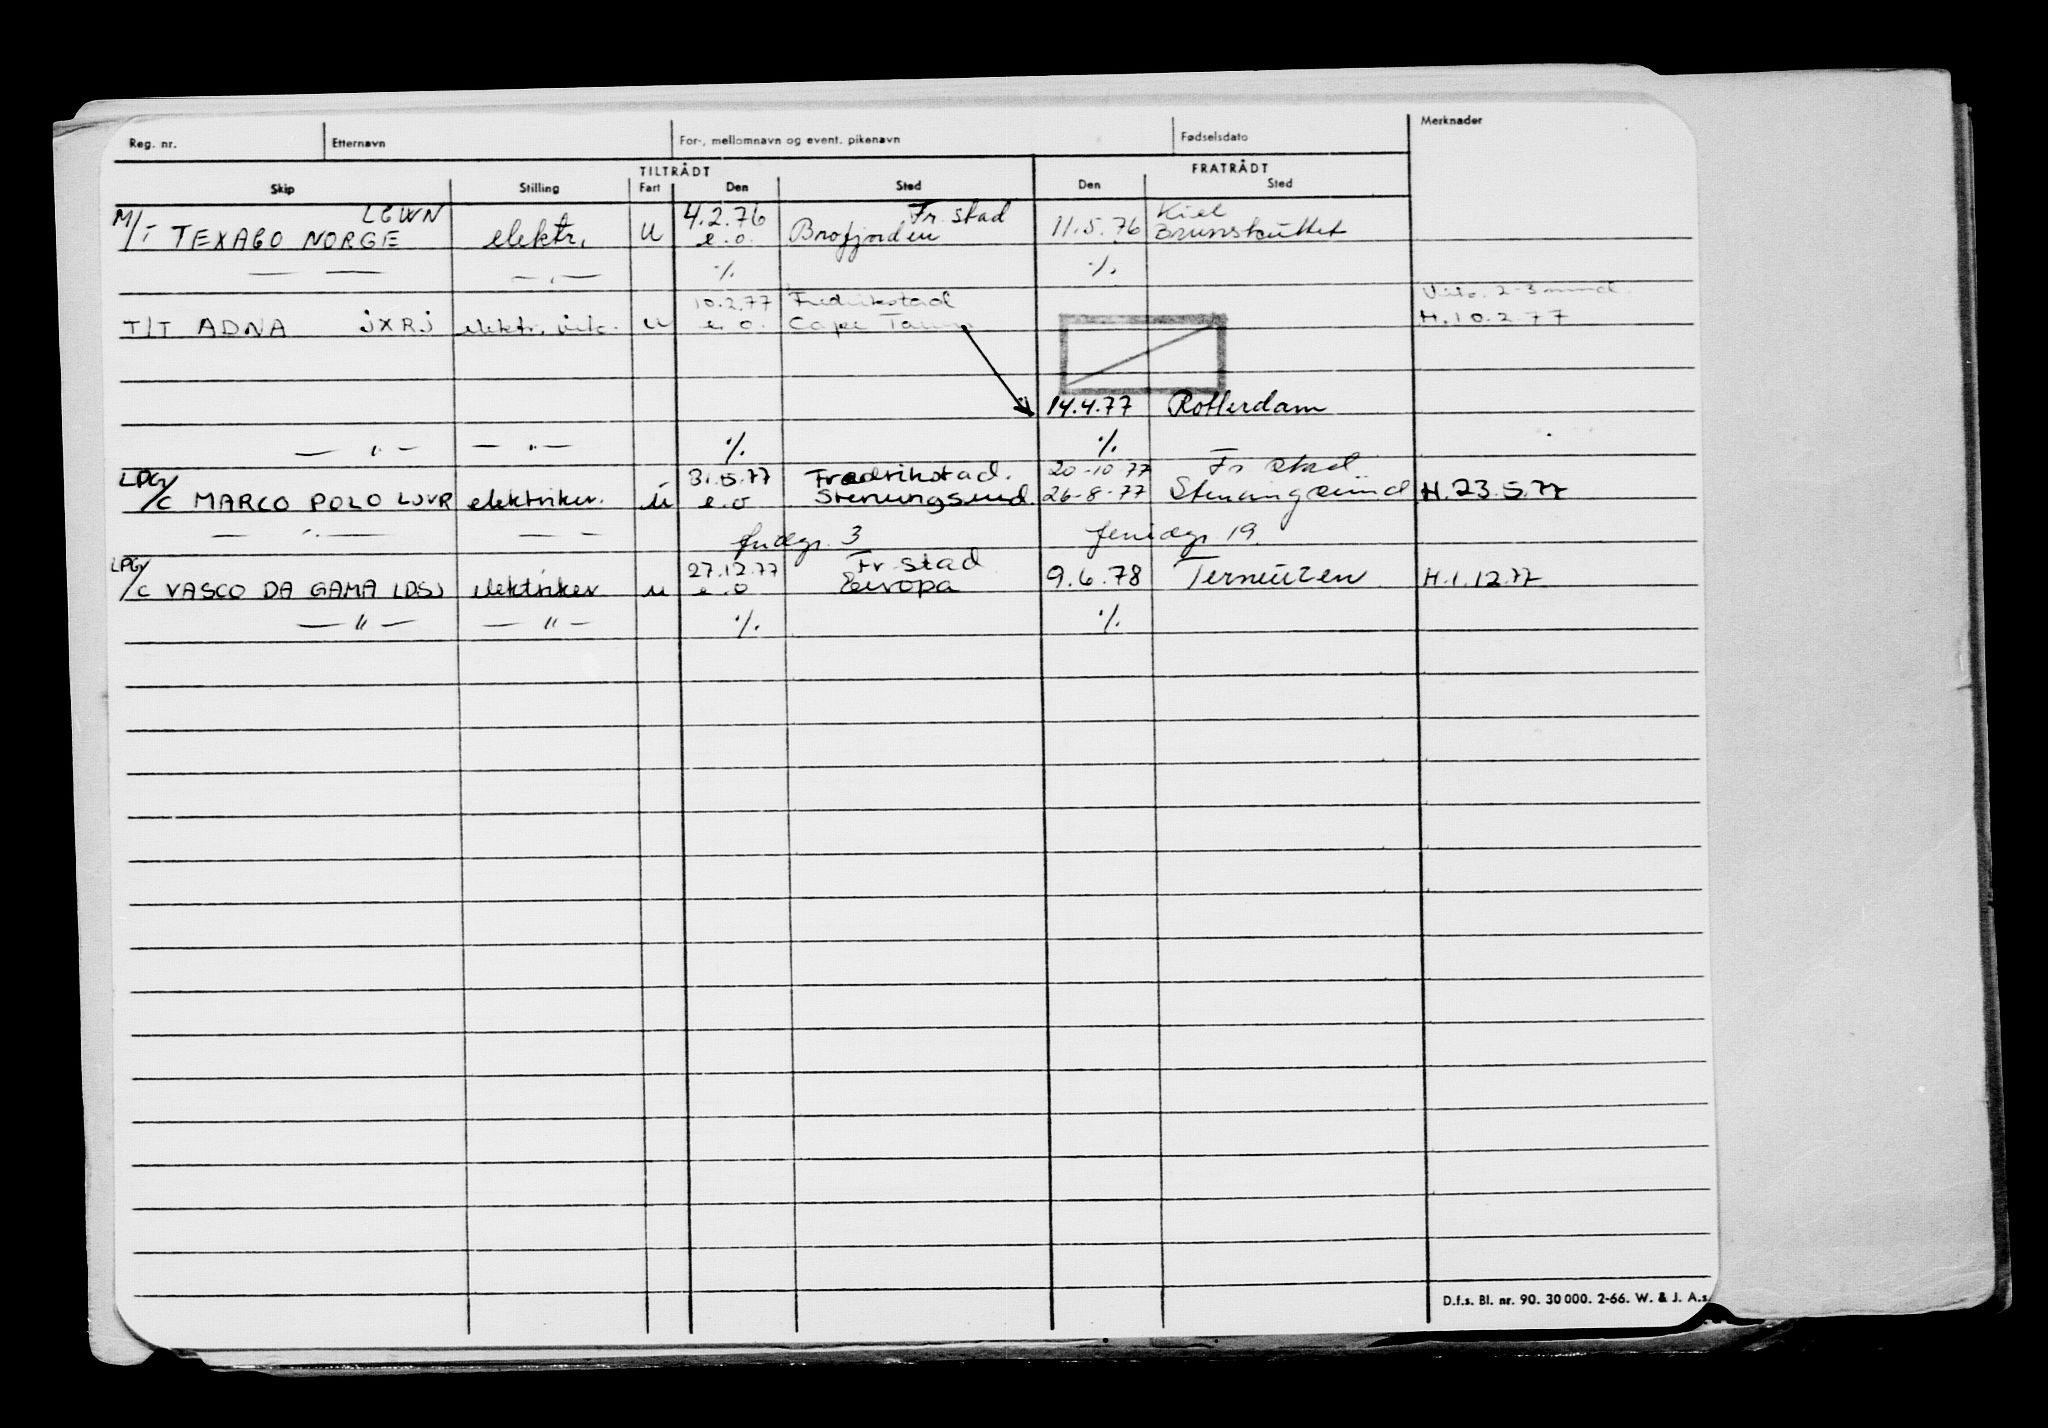 Reg. nr. Etternavn For-, mellomnavn og event. pikenavn Fødselsdato Merknader
TILTRÅDT FRATRÅDT
Skip Stilling Fart Den Sted Den Sted
M/T TEXACO NORGE LGWN elektr. u 4.2.76 e.o. Fr.stad Brofjorden 11.5.76 Kiel Brunsbüttel
— — — . — % %
T/T ADNA JXRJ elektr. vik. u 10.2.77 e.o. Fredrikstad Cape Town 2-3 mnd. H.10.2.77
14.4.77 Rotterdam
— " — — " — % %
LPG/C MARCO POLO LJVR elektriker. u 31.5.77 e.o Fredrikstad. Stenungsund 20-10-77 26-8-77 Fr stad Stenungsund H.23.5.77
— — — — 3 19.
LPG/C VASCO DA GAMA LDSJ elektriker u 27.12.77 e.o Fr.stad Europa 9.6.78 Terneuzen H.1.12.77
— " — — " — % %
D.f.s. Bl. nr. 90. 30 000. 2-66. W. & J. A.s.